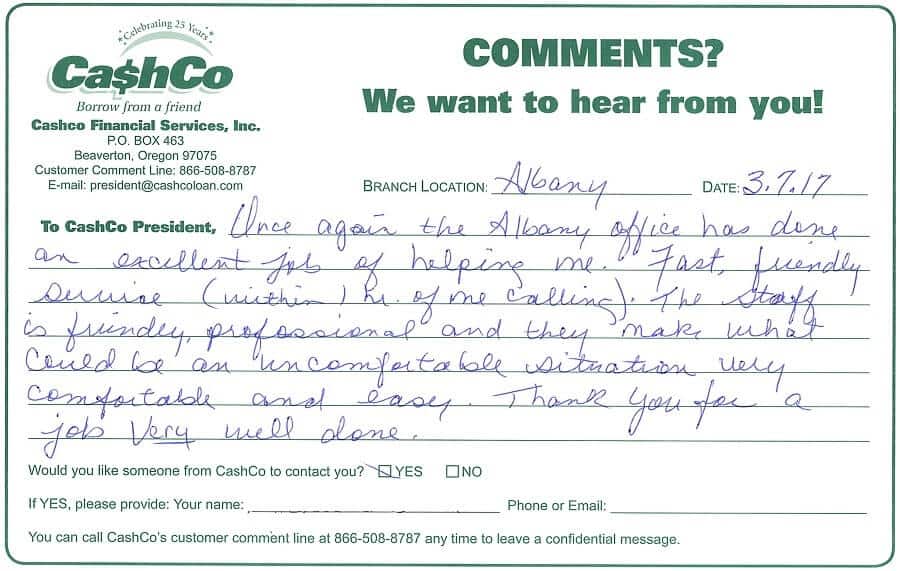 Celebrating 25 Years
Ca$hCo
Borrow from a friend
Cashco Financial Services, Inc.
P.O. BOX 463
Beaverton, Oregon 97075
Customer Comment Line: 866-508-8787
E-mail: president@cashcoloan.com
COMMENTS?
We want to hear from you!
BRANCH LOCATION: Albany DATE: 3.7.17
To CashCo President, Once again the Albany office has done
an excellent job of helping me. Fast, friendly
service (within 1 hr. of me calling). The staff
is friendly, professional and they make what
could be an uncomfortable situation very
comfortable and easy. Thank you for a
job very well done.
Would you like someone from CashCo to contact you? YES NO
If YES, please provide: Your name: Phone or Email:
You can call CashCo's customer comment line at 866-508-8787 any time to leave a confidential message.